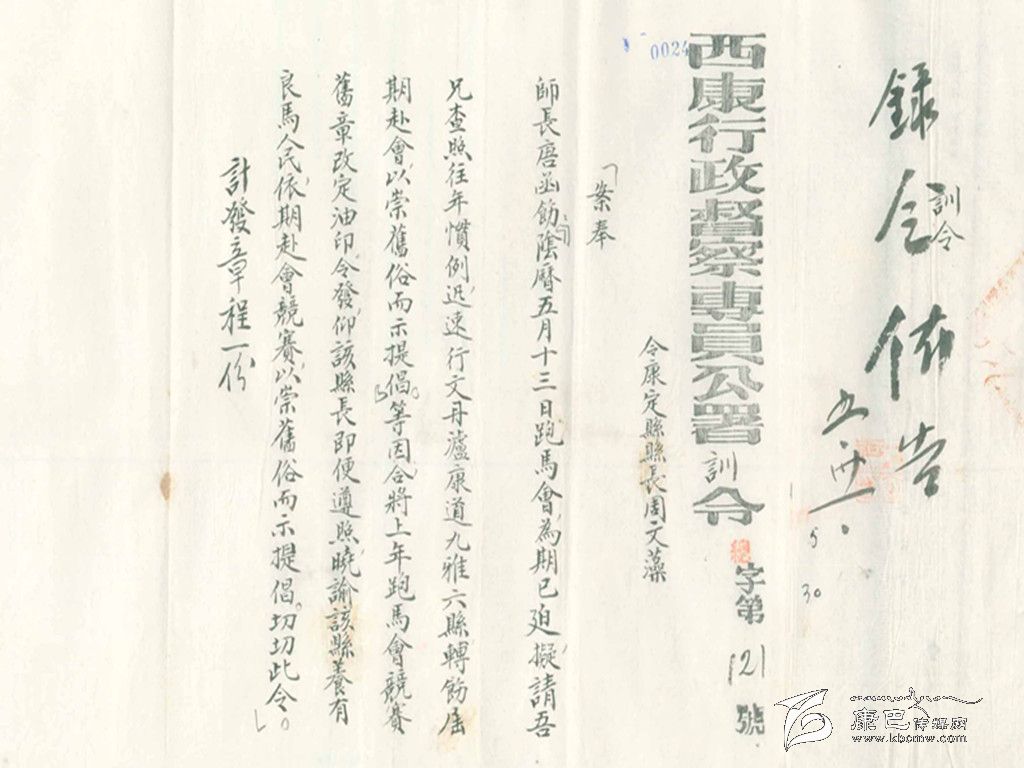 錄令佈告
訓令
五.卅一.
5
30
西康行政督察專員公署訓令 總字第121號
0024
令康定縣縣長周文藻
「案奉
師長唐函飭內陰曆五月十三日跑馬會為期已迫擬請吾
兄查照往年慣例迅速行文丹瀘康道九雅六縣轉飭屆
期赴會以崇舊俗而示提倡。等因合將上年跑馬會競賽
舊章改定油印令發仰該縣長即便遵照曉諭該縣養有
良馬人民依期赴會競賽以崇舊俗而示提倡。切切此令。」
計發章程一份
康巴傳媒網
www.kbcmw.com